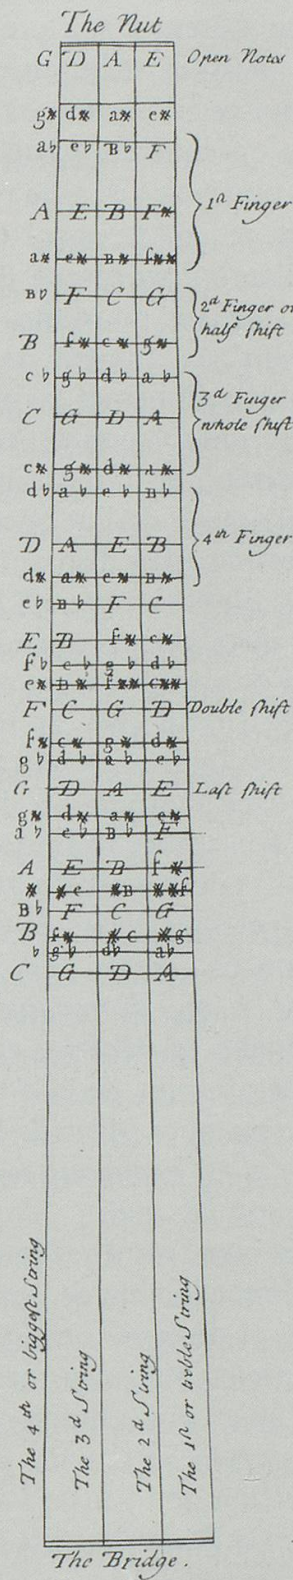 The Nut
G D A E Open Notes
g# d# a# e#
a♭ e♭ B♭ F
A E B F# 1st Finger
a# e# B# f##
B♭ F C G 2d Finger or
B f# c# g# half shift
c♭ g♭ d♭ a♭
3d Finger
C G D A whole shift
c# g# d# a#
d♭ a♭ e♭ B♭
D A E B 4th Finger
d# a# e# B#
e♭ B♭ F C
E B f# c#
f♭ c♭ g♭ d♭
e# B# f## c##
F C G D Double shift
f# c# g# d#
g♭ d♭ a♭ e♭
G D A E Last shift
g# d# a# e#
a♭ e♭ B♭ F
A E B f#
# #e #B ##f
B♭ F C G
B f# #c #g
♭ g♭ d♭ a♭
C G D A
The 4th or biggest String
The 3d String
The 2d String
The 1st or treble String
The Bridge.